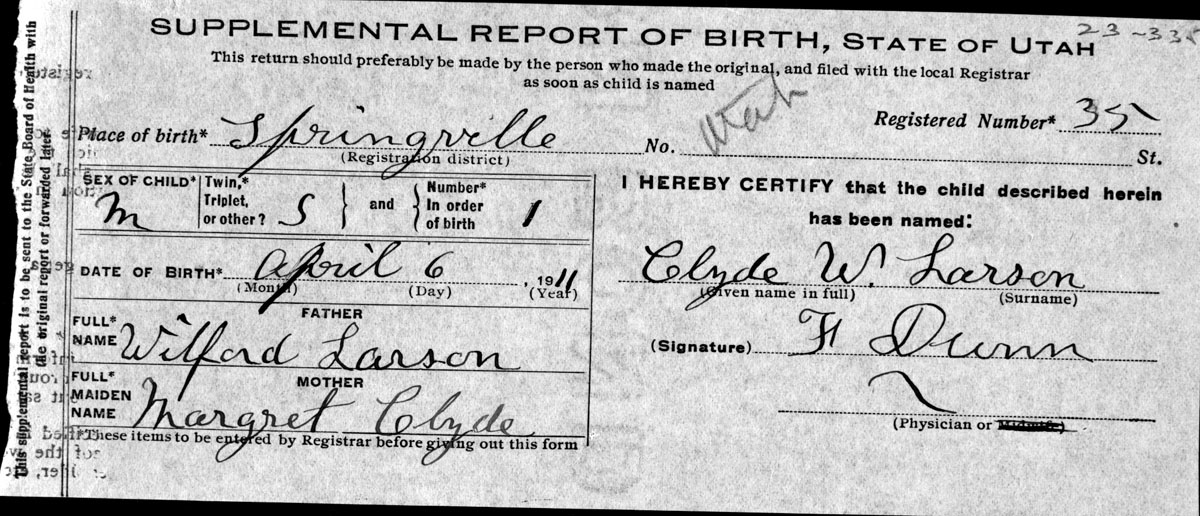 23-335
SUPPLEMENTAL REPORT OF BIRTH, STATE OF UTAH
This return should preferably be made by the person who made the original, and filed with the local Registrar
as soon as child is named
Utah
Registered Number* 35
Place of birth* Springville No. St.
(Registration district)
SEX OF CHILD* M
Twin,* Triplet, or other? S } and { Number* In order of birth 1
DATE OF BIRTH* April 6, 1911
(Month) (Day) (Year)
FATHER
FULL* NAME Wilford Larson
MOTHER
FULL* MAIDEN NAME Margret Clyde
*These items to be entered by Registrar before giving out this form
I HEREBY CERTIFY that the child described herein
has been named:
Clyde W. Larson
(Given name in full) (Surname)
(Signature) F Dunn
(Physician or Midwife)
This supplemental report is to be sent to the State Board of Health with
the original report or forwarded later